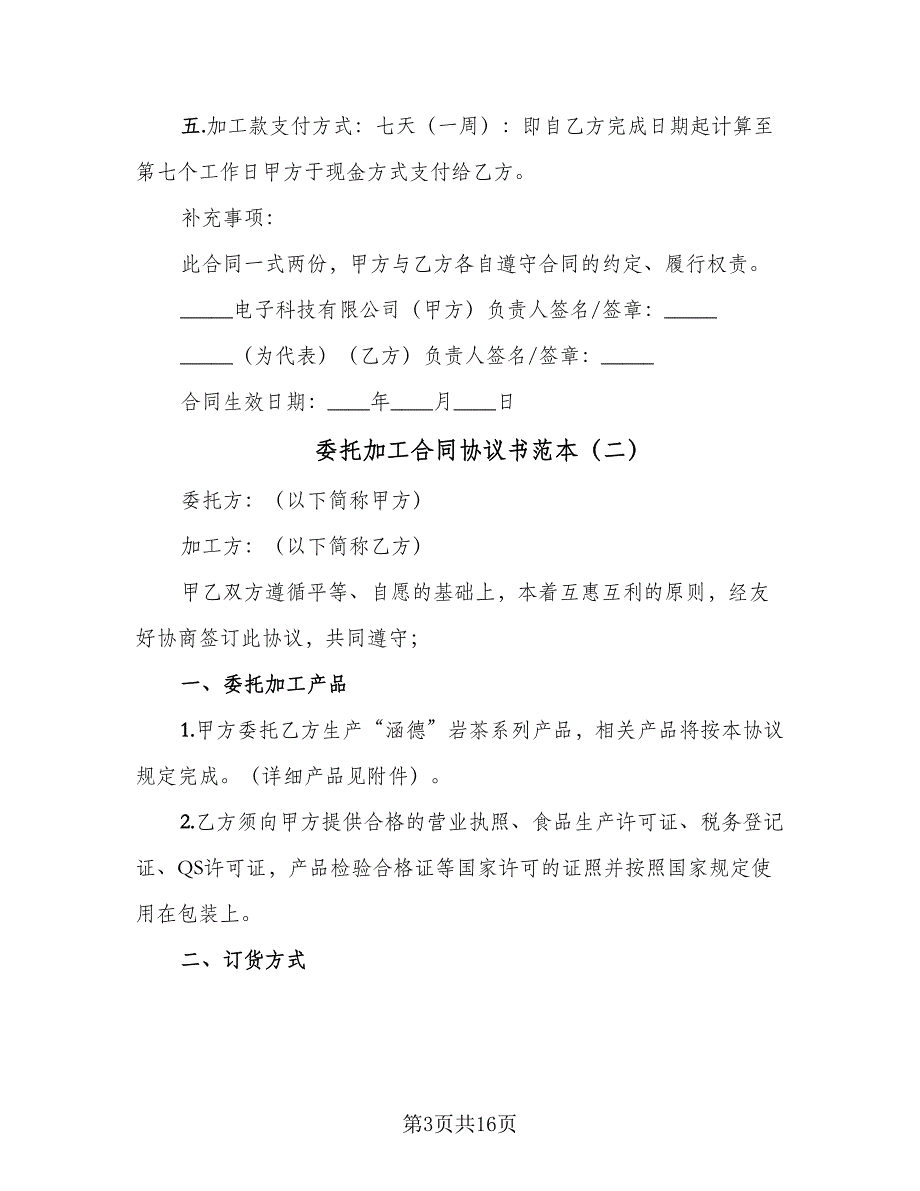 五.加工款支付方式：七天（一周）：即自乙方完成日期起计算至
第七个工作日甲方于现金方式支付给乙方。
补充事项：
此合同一式两份，甲方与乙方各自遵守合同的约定、履行权责。
_____电子科技有限公司（甲方）负责人签名/签章：_____
_____（为代表）（乙方）负责人签名/签章：_____
合同生效日期：____年____月____日
委托加工合同协议书范本（二）
委托方：（以下简称甲方）
加工方：（以下简称乙方）
甲乙双方遵循平等、自愿的基础上，本着互惠互利的原则，经友
好协商签订此协议，共同遵守；
一、委托加工产品
1.甲方委托乙方生产“涵德”岩茶系列产品，相关产品将按本协议
规定完成。（详细产品见附件）。
2.乙方须向甲方提供合格的营业执照、食品生产许可证、税务登记
证、QS许可证，产品检验合格证等国家许可的证照并按照国家规定使
用在包装上。
二、订货方式
第3页共16页